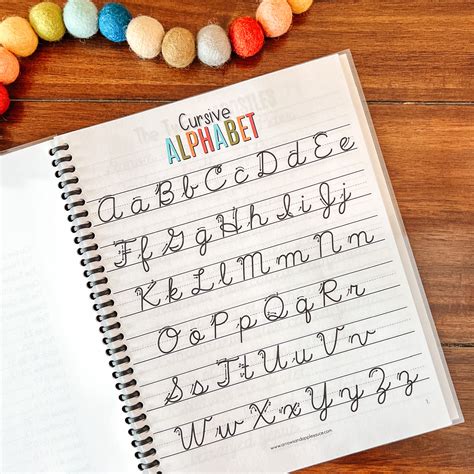 Cursive
ALPHABET
Aa Bb Cc Dd Ee
Ff Gg Hh Ii Jj
Kk Ll Mm Nn
Oo Pp Qq Rr
Ss Tt Uu Vv
Ww Xx Yy Zz
www.arrowsandapplesauce.com
1